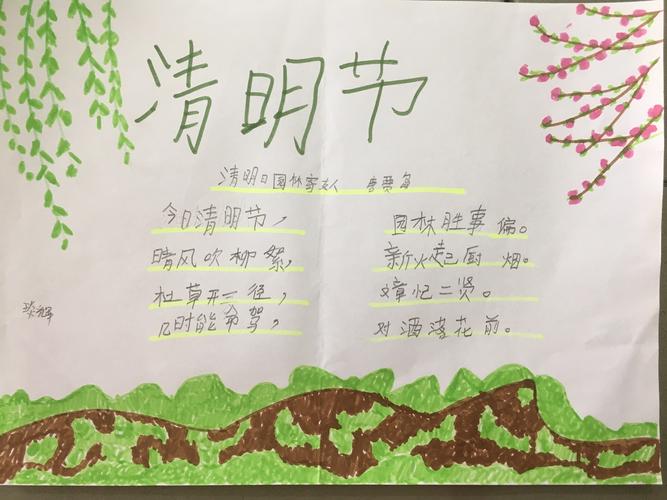 清明节
清明日园林寄友人 贾岛
今日清明节，
园林胜事偏。
晴风吹柳絮，
新火起厨烟。
杜草开三径，
文章忆二贤。
几时能命驾，
对洒落花前。